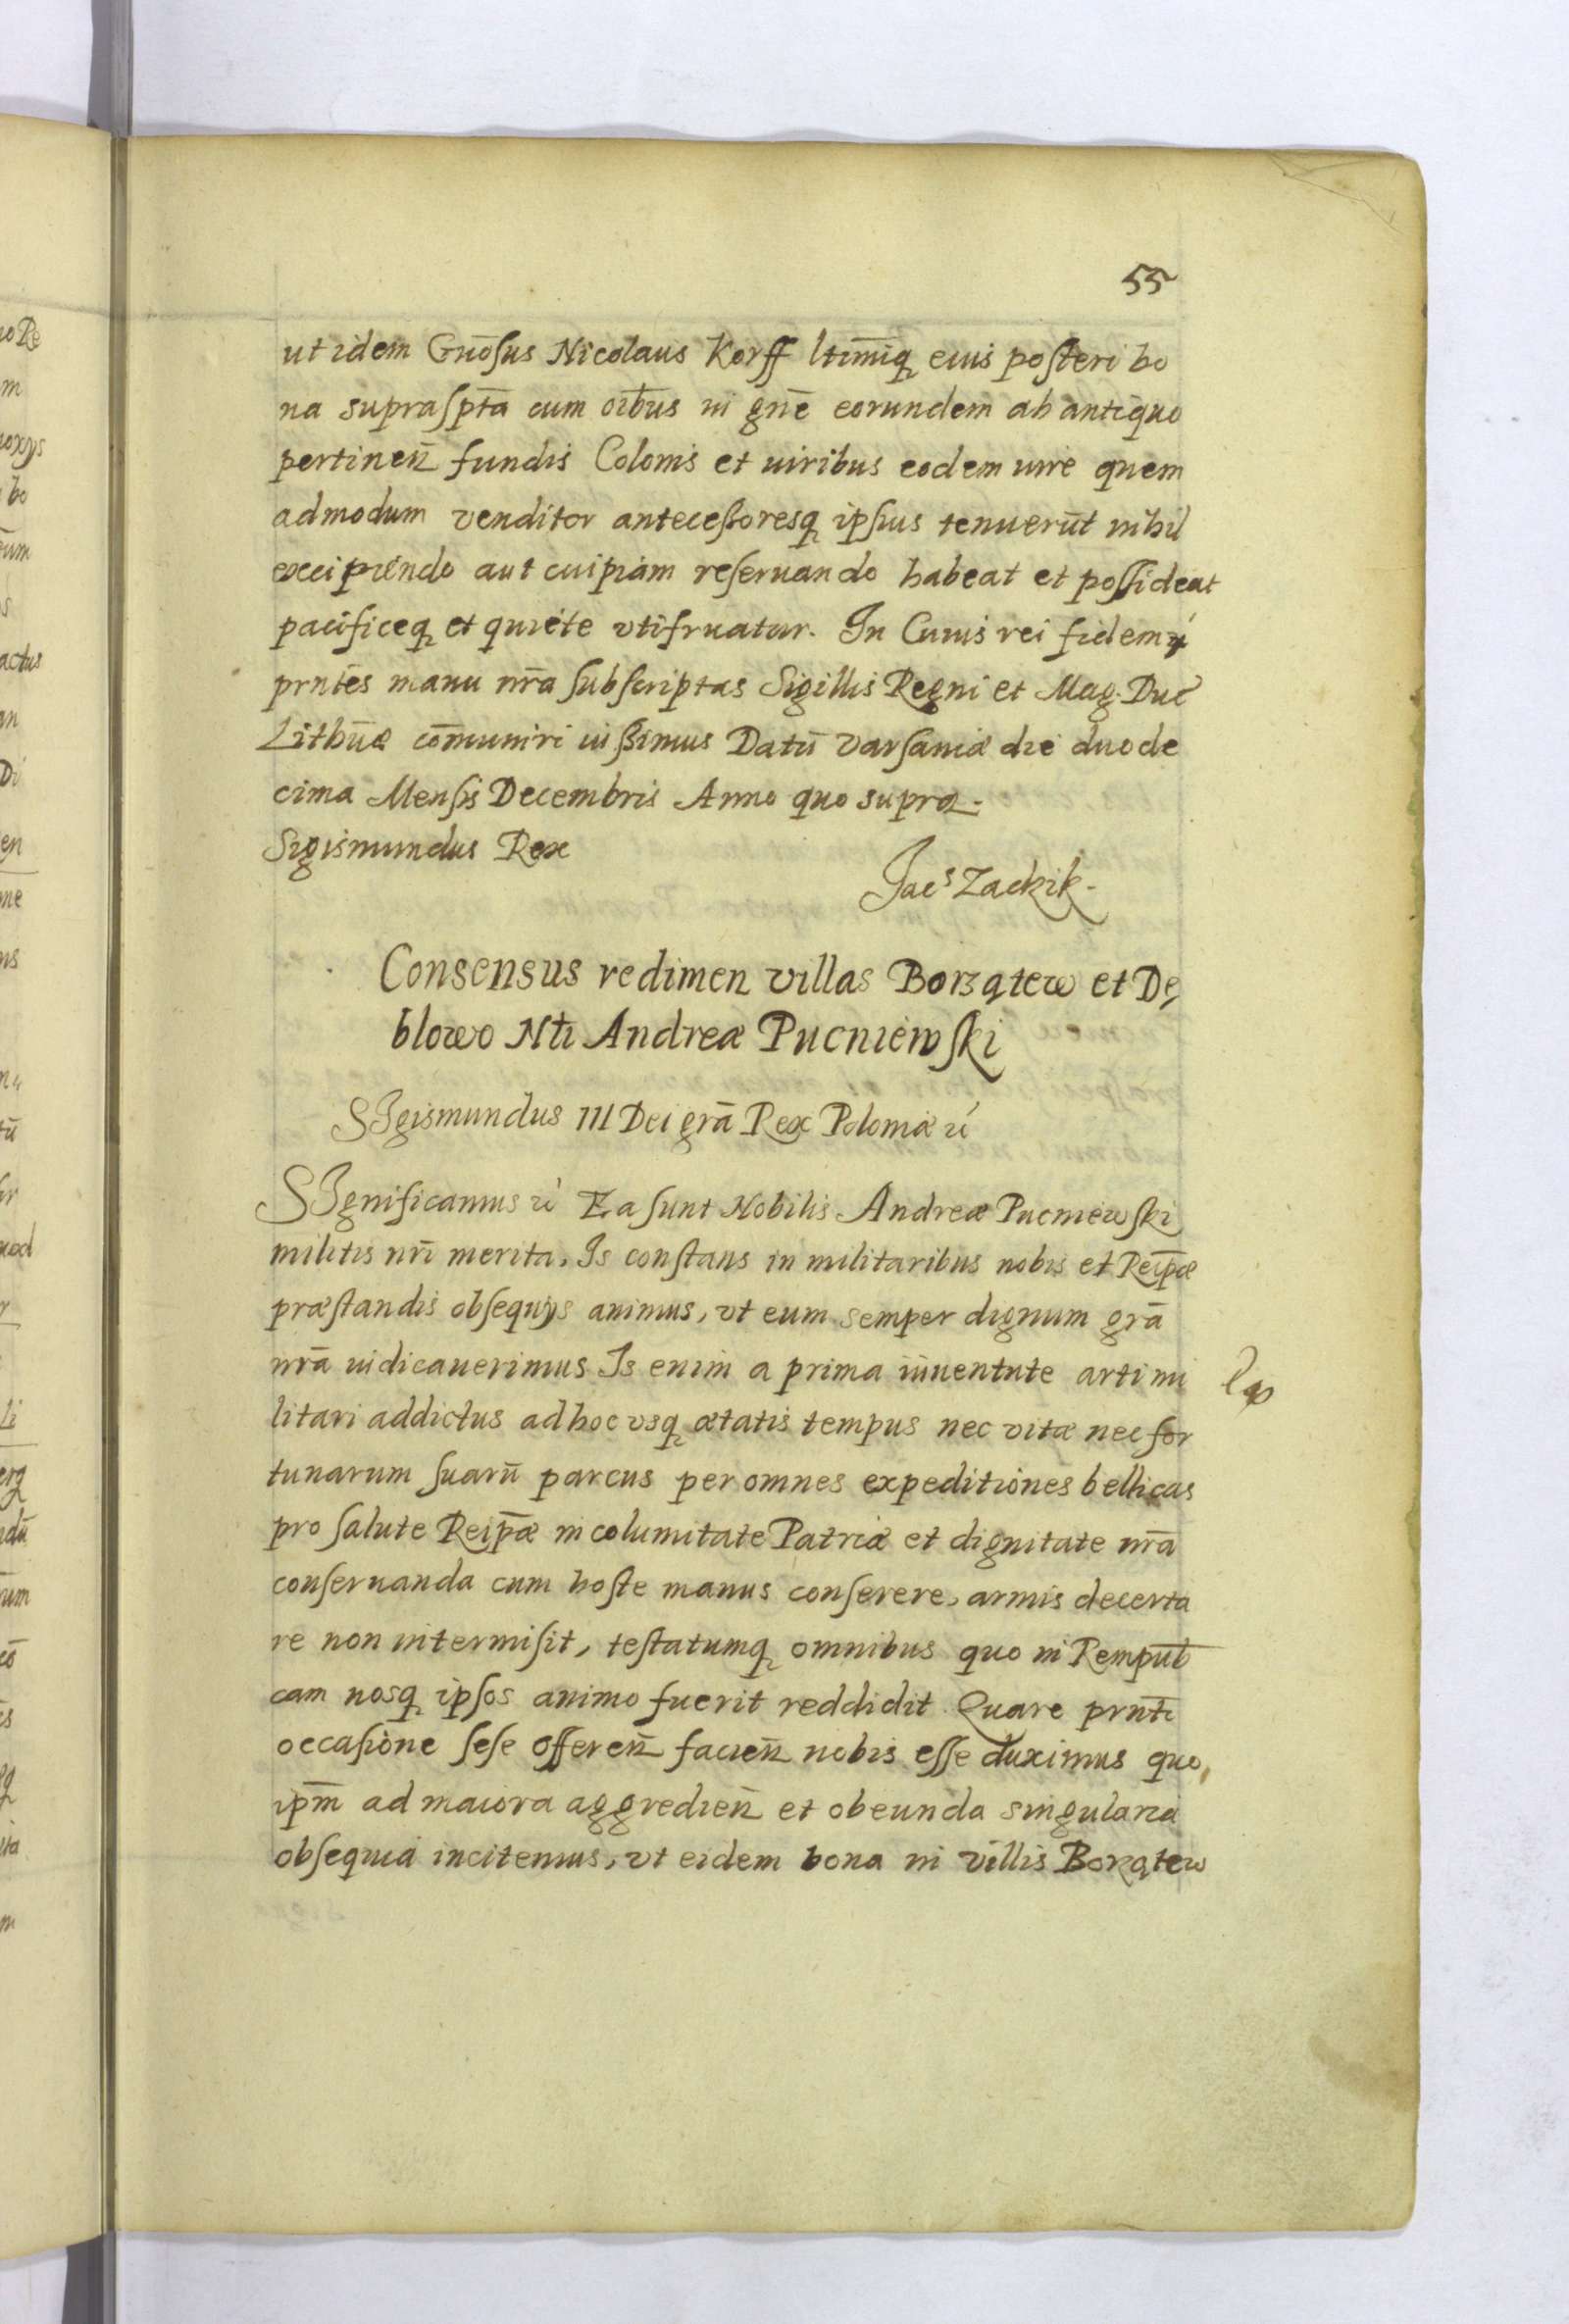 55
ut idem Gnōsus Nicolaus Korff ltimīq eius posteri bo
na supraspta cum oībus in gnē eorundem ab antiquo
pertinen fundis Colonis et uiribus eodem iure quem
admodum venditor antecessoresq ipsius tenuerūt nihil
excipiendo aut cuipiam reseruando habeat et possideat
pacificeq et quiete vtifruatur. In Cuius rei fidem
prntes manu nrā subscriptas Sigillis Regni et Mag. Duc
Lithūæ cōmuniri iussimus Datū Varsauiæ die duode
cima Mensis Decembris Anno quo supra.
Sigismundus Rex
Jacs Zackik.
Consensus redimen villas Borzątew et Dę
blowo Nti Andreæ Pucniewski
SIgismundus III Dei grā Rex Poloniæ ić
SIgnificamus ić Ea sunt Nobilis Andreæ Pucniewski
militis nri merita, Is constans in militaribus nobis et Reipæ
præstandis obsequijs animus, vt eum semper dignum grā
nrā iudicauerimus Is enim a prima iuuentute arti mi
litari addictus ad hoc vsq ætatis tempus nec vitæ nec for
tunarum suarū parcus per omnes expeditiones bellicas
pro salute Reipæ incolumitate Patriæ et dignitate nrā
conseruanda cum hoste manus conserere, armis decerta
re non intermisit, testatumq omnibus quo in Rempub
cam nosq ipsos animo fuerit reddidit Quare prnti
occasione sese offeren facien nobis esse duximus quo
ipm ad maiora aggredien et obeunda singularia
obsequia incitemus, vt eidem bona in villis Borzątew